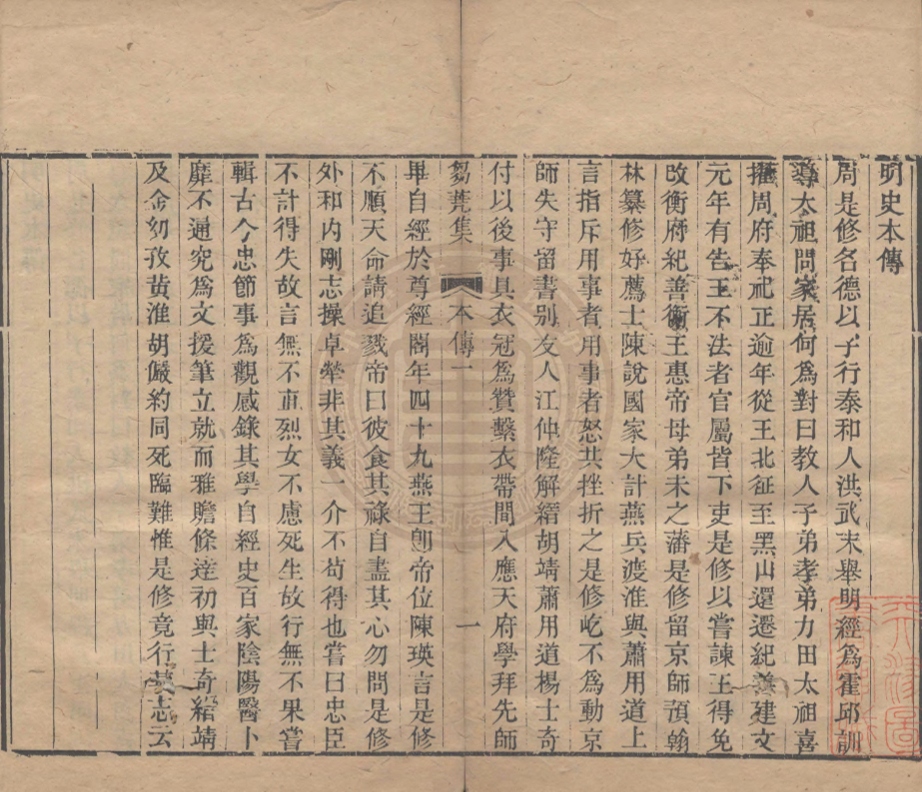 明史本傳
周是修名德以字行泰和人洪武末舉明經爲霍邱訓
導太祖問家居何爲對曰教人子弟孝弟力田太祖喜
擢周府奉祀正逾年從王北征至黑山還遷紀善建文
元年有告王不法者官屬皆下吏是修以嘗諫王得免
改衡府紀善衡王惠帝母弟未之藩是修留京師預翰
林纂修好薦士陳說國家大計燕兵渡淮與蕭用道上
言指斥用事者用事者怒共挫折之是修屹不爲動京
師失守留書别友人江仲隆解縉胡靖蕭用道楊士奇
付以後事具衣冠爲贊繫衣帶間入應天府學拜先師
芻蕘集 本傳一 一
畢自經於尊經閣年四十九燕王卽帝位陳瑛言是修
不順天命請追戮帝曰彼食其祿自盡其心勿問是修
外和内剛志操卓犖非其義一介不苟得也嘗曰忠臣
不計得失故言無不直烈女不慮死生故行無不果嘗
輯古今忠節事爲觀感錄其學自經史百家陰陽醫卜
靡不通究爲文援筆立就而雅贍條達初與士奇縉靖
及金幼孜黄淮胡儼約同死臨難惟是修竟行其志云